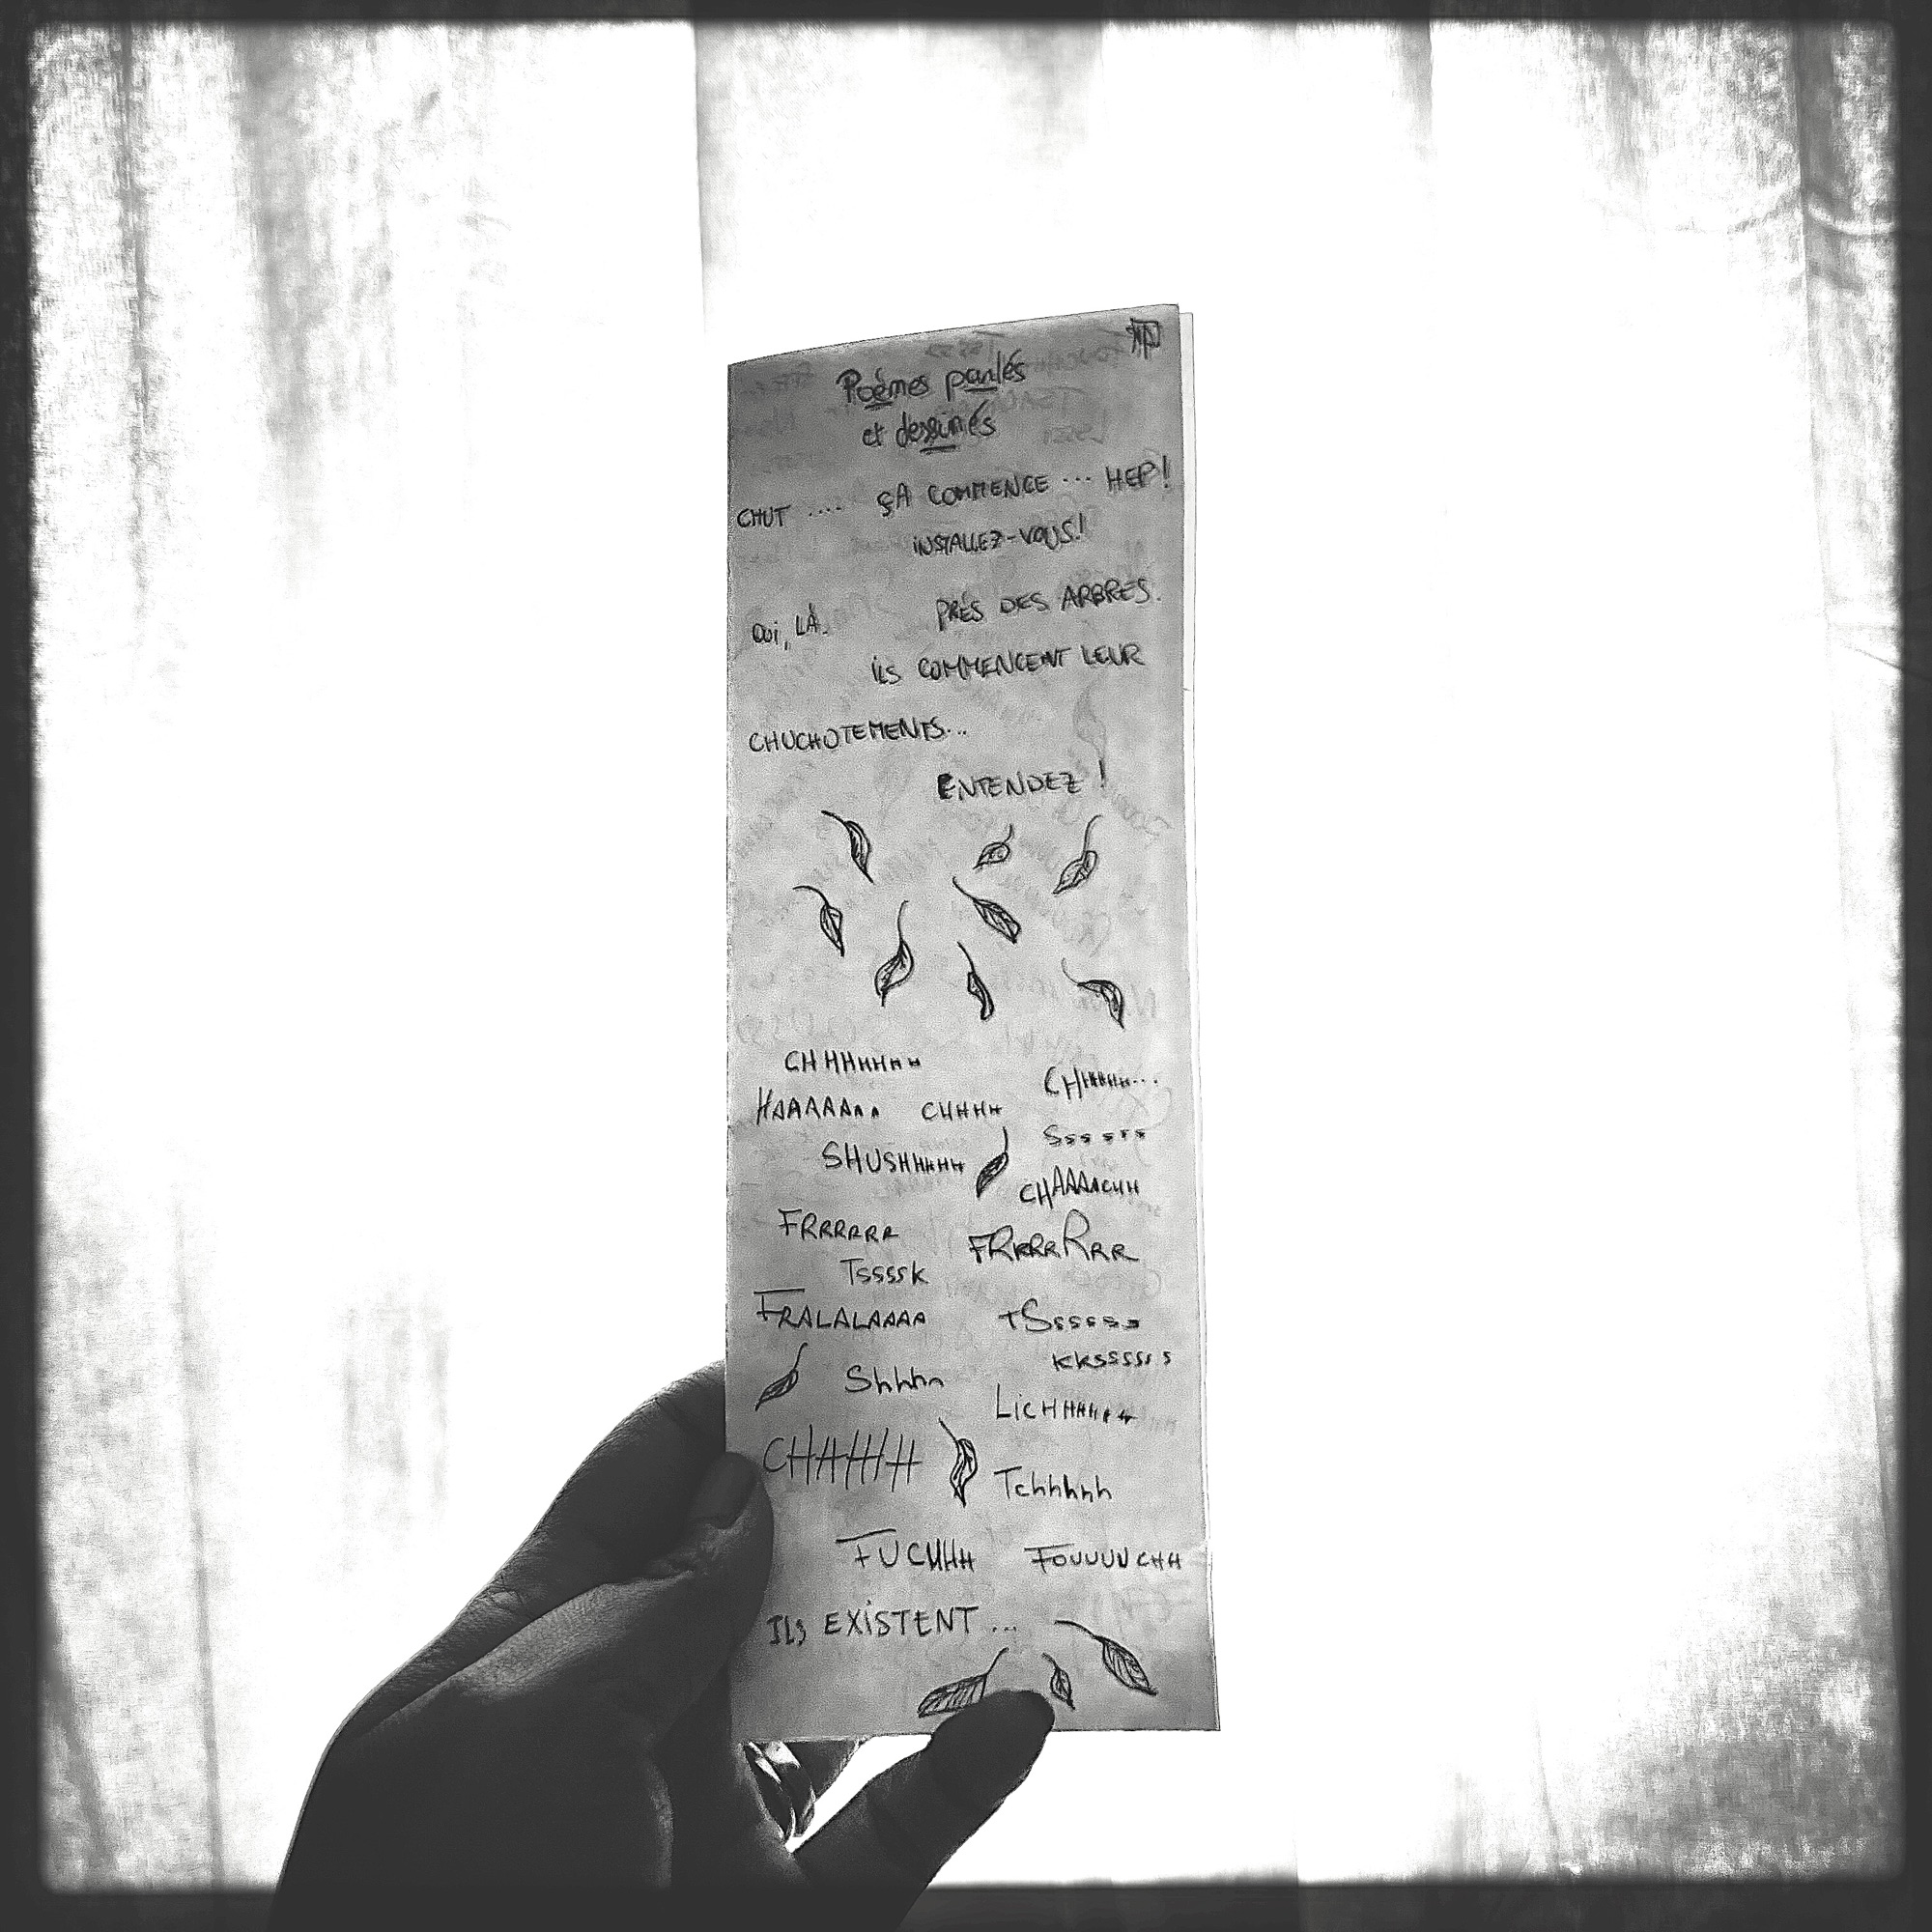 Poèmes parlés
et dessinés
CHUT .... ÇA COMMENCE ... HEP!
INSTALLEZ-VOUS!
OUI, LÀ. PRÈS DES ARBRES.
ILS COMMENCENT LEUR
CHUCHOTEMENTS...
ENTENDEZ !
CHHHHHHH
CHHHHHH...
HAAAAAAA CHHHH
SSSSSSS
SHUSHHHHH
CHAAAACHH
FRRRRRR
FRRRRRRRR
TSSSSK
FRALALAAAA TSSSSSSS
KKSSSSSS
Shhhh
LICHHHHHH
CHHHHH
Tchhhhh
FUCHHH FOUUUUCHH
ILS EXISTENT ...